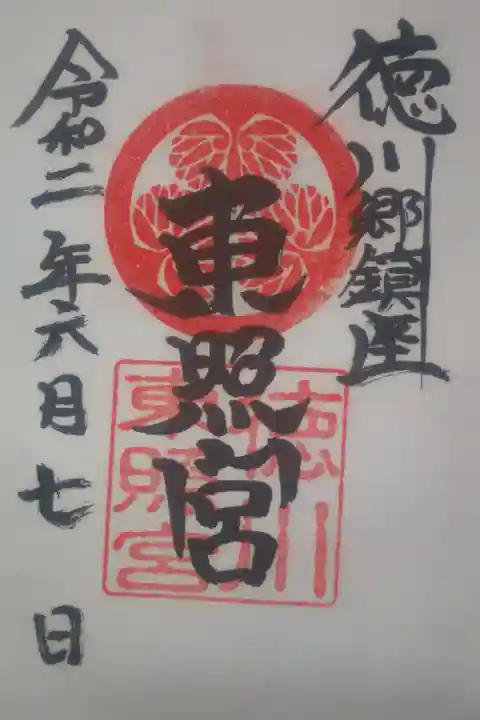 徳川郷鎮座
東照宮
徳川
東照宮
令和二年六月七日